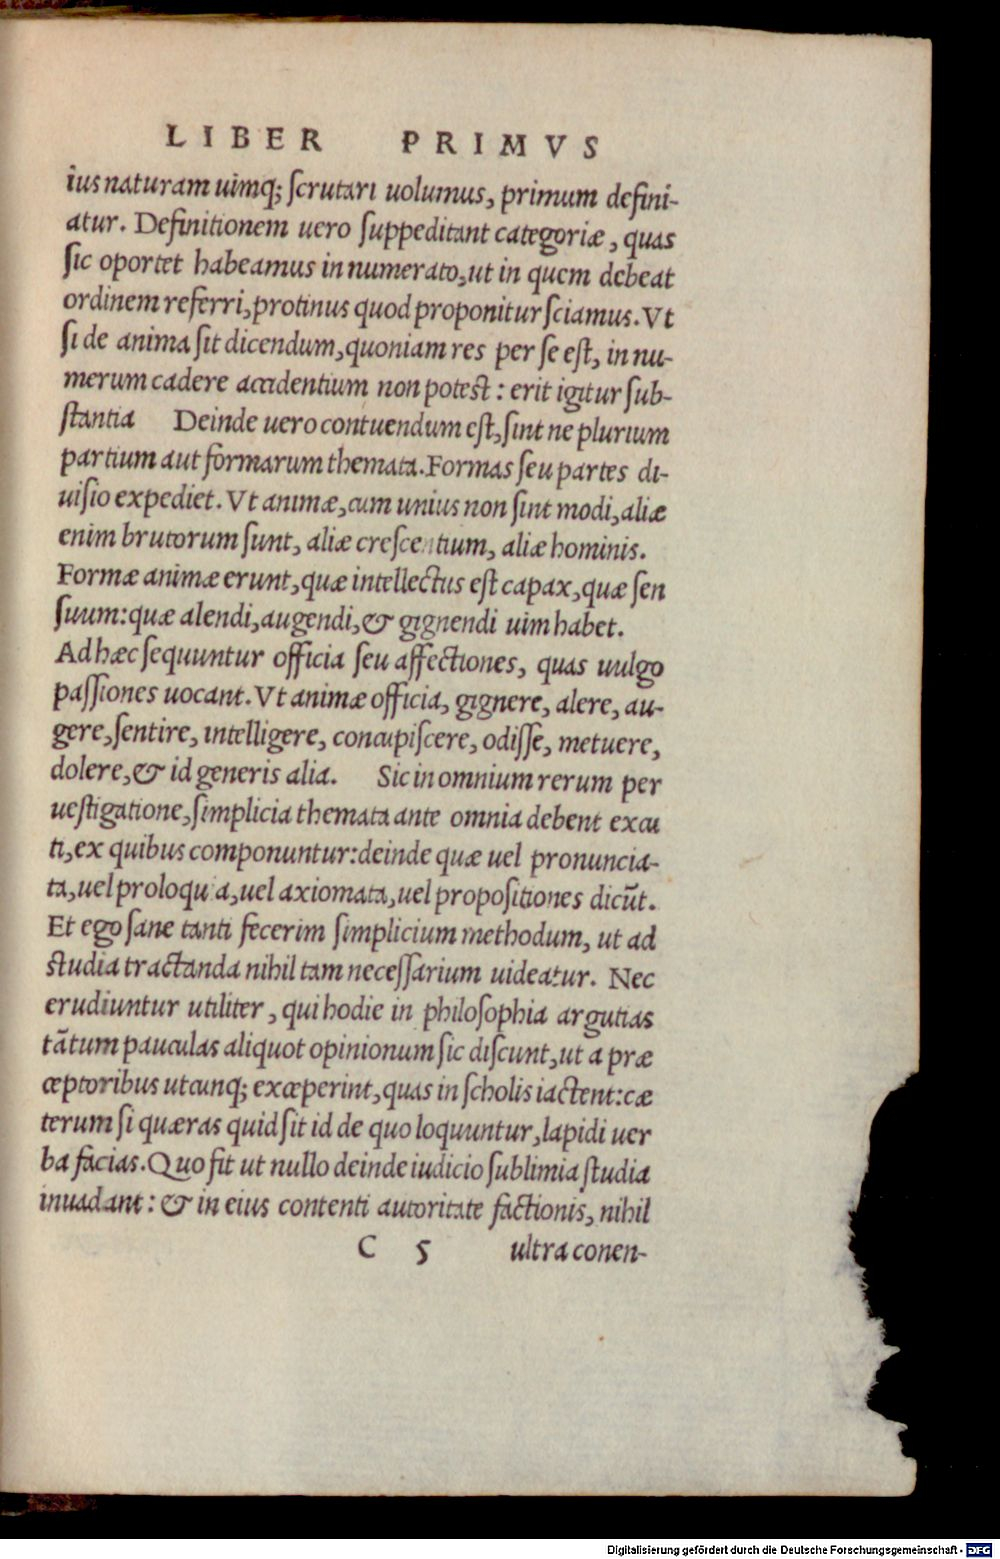 LIBER PRIMVS
ius naturam uimq; scrutari uolumus, primum defini-
atur. Definitionem uero suppeditant categoriæ, quas
sic oportet habeamus in numerato, ut in quem debeat
ordinem referri, protinus quod proponitur sciamus. Vt
si de anima sit dicendum, quoniam res per se est, in nu-
merum cadere accidentium non potest: erit igitur sub-
stantia Deinde uero contuendum est, sint ne plurium
partium aut formarum themata. Formas seu partes di-
uisio expediet. Vt animæ, cum unius non sint modi, aliæ
enim brutorum sunt, aliæ crescentium, aliæ hominis.
Formæ animæ erunt, quæ intellectus est capax, quæ sen
suum: quæ alendi, augendi, & gignendi uim habet.
Ad hæc sequuntur officia seu affectiones, quas uulgo
passiones uocant. Vt animæ officia, gignere, alere, au-
gere, sentire, intelligere, concupiscere, odisse, metuere,
dolere, & id generis alia. Sic in omnium rerum per
uestigatione, simplicia themata ante omnia debent excu
ti, ex quibus componuntur: deinde quæ uel pronuncia-
ta, uel proloquia, uel axiomata, uel propositiones dicūt.
Et ego sane tanti fecerim simplicium methodum, ut ad
studia tractanda nihil tam necessarium uideatur. Nec
erudiuntur utiliter, qui hodie in philosophia argutias
tātum pauculas aliquot opinionum sic discunt, ut a præ
ceptoribus utcunq; exceperint, quas in scholis iactent: cæ
terum si quæras quid sit id de quo loquuntur, lapidi uer
ba facias. Quo fit ut nullo deinde iudicio sublimia studia
inuadant: & in eius contenti autoritate factionis, nihil
C 5 ultra conen-
Digitalisierung gefördert durch die Deutsche Forschungsgemeinschaft - DFG